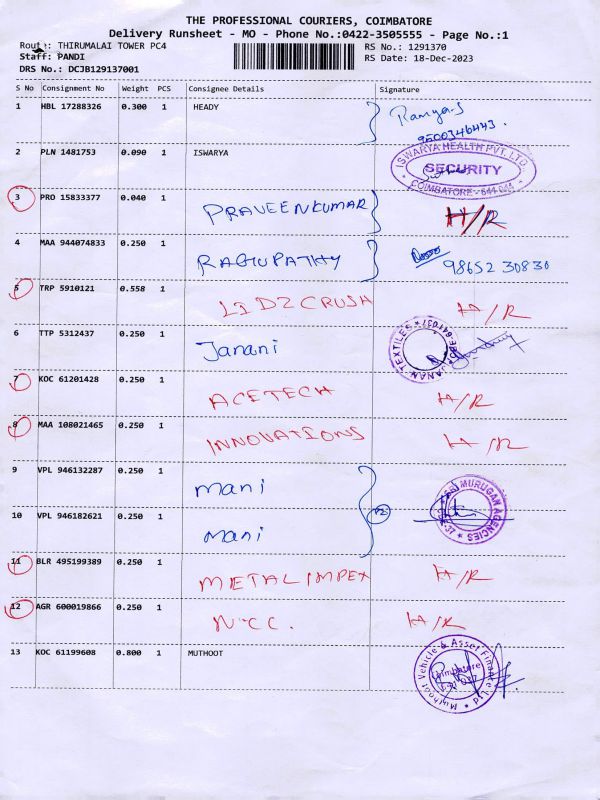 THE PROFESSIONAL COURIERS, COIMBATORE
Delivery Runsheet - MO - Phone No.:0422-3505555 - Page No.:1
Route: THIRUMALAI TOWER PC4
RS No.: 1291370
Staff: PANDI
RS Date: 18-Dec-2023
DRS No.: DCJB129137001
S No Consignment No Weight PCS Consignee Details Signature
1 HBL 17288326 0.300 1 HEADY Ramya.S
9500346443.
2 PLN 1481753 0.090 1 ISWARYA ISWARYA HEALTH PVT. LTD. SECURITY COIMBATORE
3 PRO 15833377 0.040 1 PRAVEENKUMAR H/R
4 MAA 944074833 0.250 1 RAGUPATHY 98652 30830
5 TRP 5910121 0.558 1 LIDZCRUSH H/R
6 TTP 5312437 0.250 1 Janani JANANI TEXTILES
7 KOC 61201428 0.250 1 ACETECH H/R
8 MAA 108021465 0.250 1 INNOVATIONS H/R
9 VPL 946132287 0.250 1 mani
MURUGAN AGENCIES
10 VPL 946182621 0.250 1 mani
11 BLR 495199389 0.250 1 METAL IMPEX H/R
12 AGR 600019866 0.250 1 N.C.C. H/R
13 KOC 61199608 0.800 1 MUTHOOT Muthoot Vehicle & Asset Finance Ltd Coimbatore